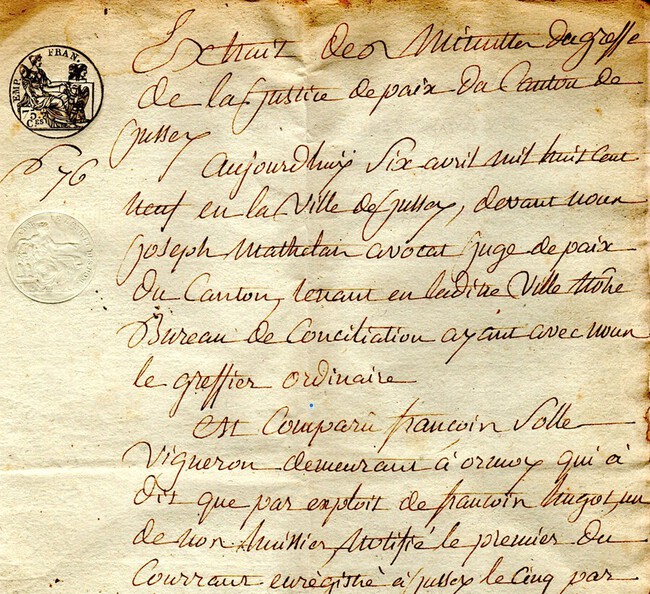 EMP. FRAN.
Extrait des Minuttes du greffe
de la Justice de paix du Canton de
Jussey
76
Aujourdhuy Six avril mil huit Cent
neuf en la Ville de Jussey, devant nous
Joseph Mathelair avocat Juge de paix
du Canton, tenant en ladite Ville notre
Bureau de Conciliation ayant avec nous
le greffier ordinaire
est Comparû françois Solle
Vigneron demeurant à ormoy qui à
dit que par exploit de francois hugot, un
de nos huissier, Notifié le premier du
Courrant enrégistré à Jussey le Cinq par